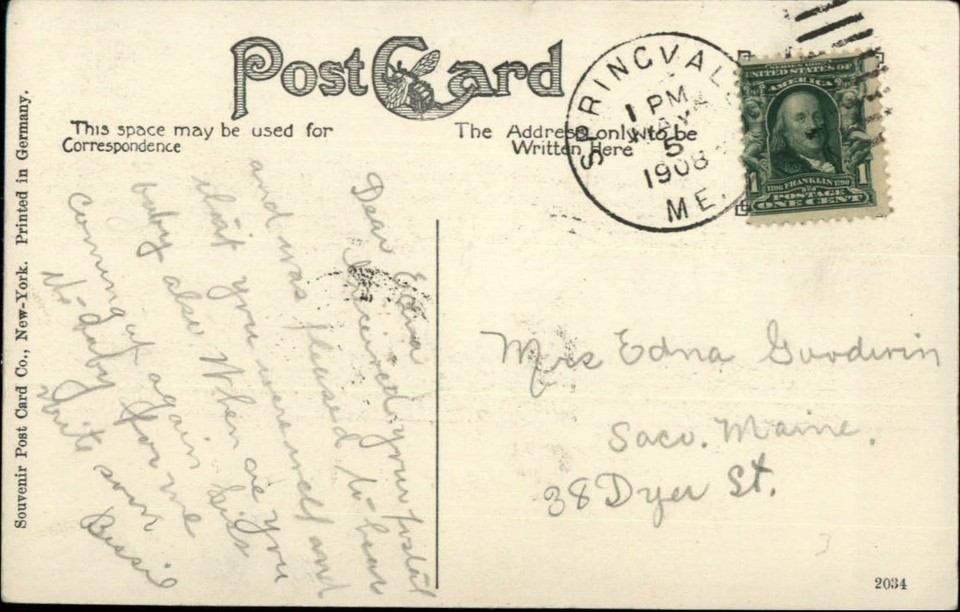 Post Card
This space may be used for
Correspondence
The Address only to be
Written Here
SPRINGVAL
1 PM
MAY
5
1908
ME.
UNITED STATES OF
AMERICA
1 1
FRANKLIN
POSTAGE
ONE CENT
Dear Edna
I received your postal
and was pleased to hear
that you were well and
baby also When are you
coming up again Kiss
the baby for me
Write soon
Bessie
Mrs Edna Goodwin
Saco. Maine.
38 Dyer St.
3
2034
Souvenir Post Card Co., New-York. Printed in Germany.